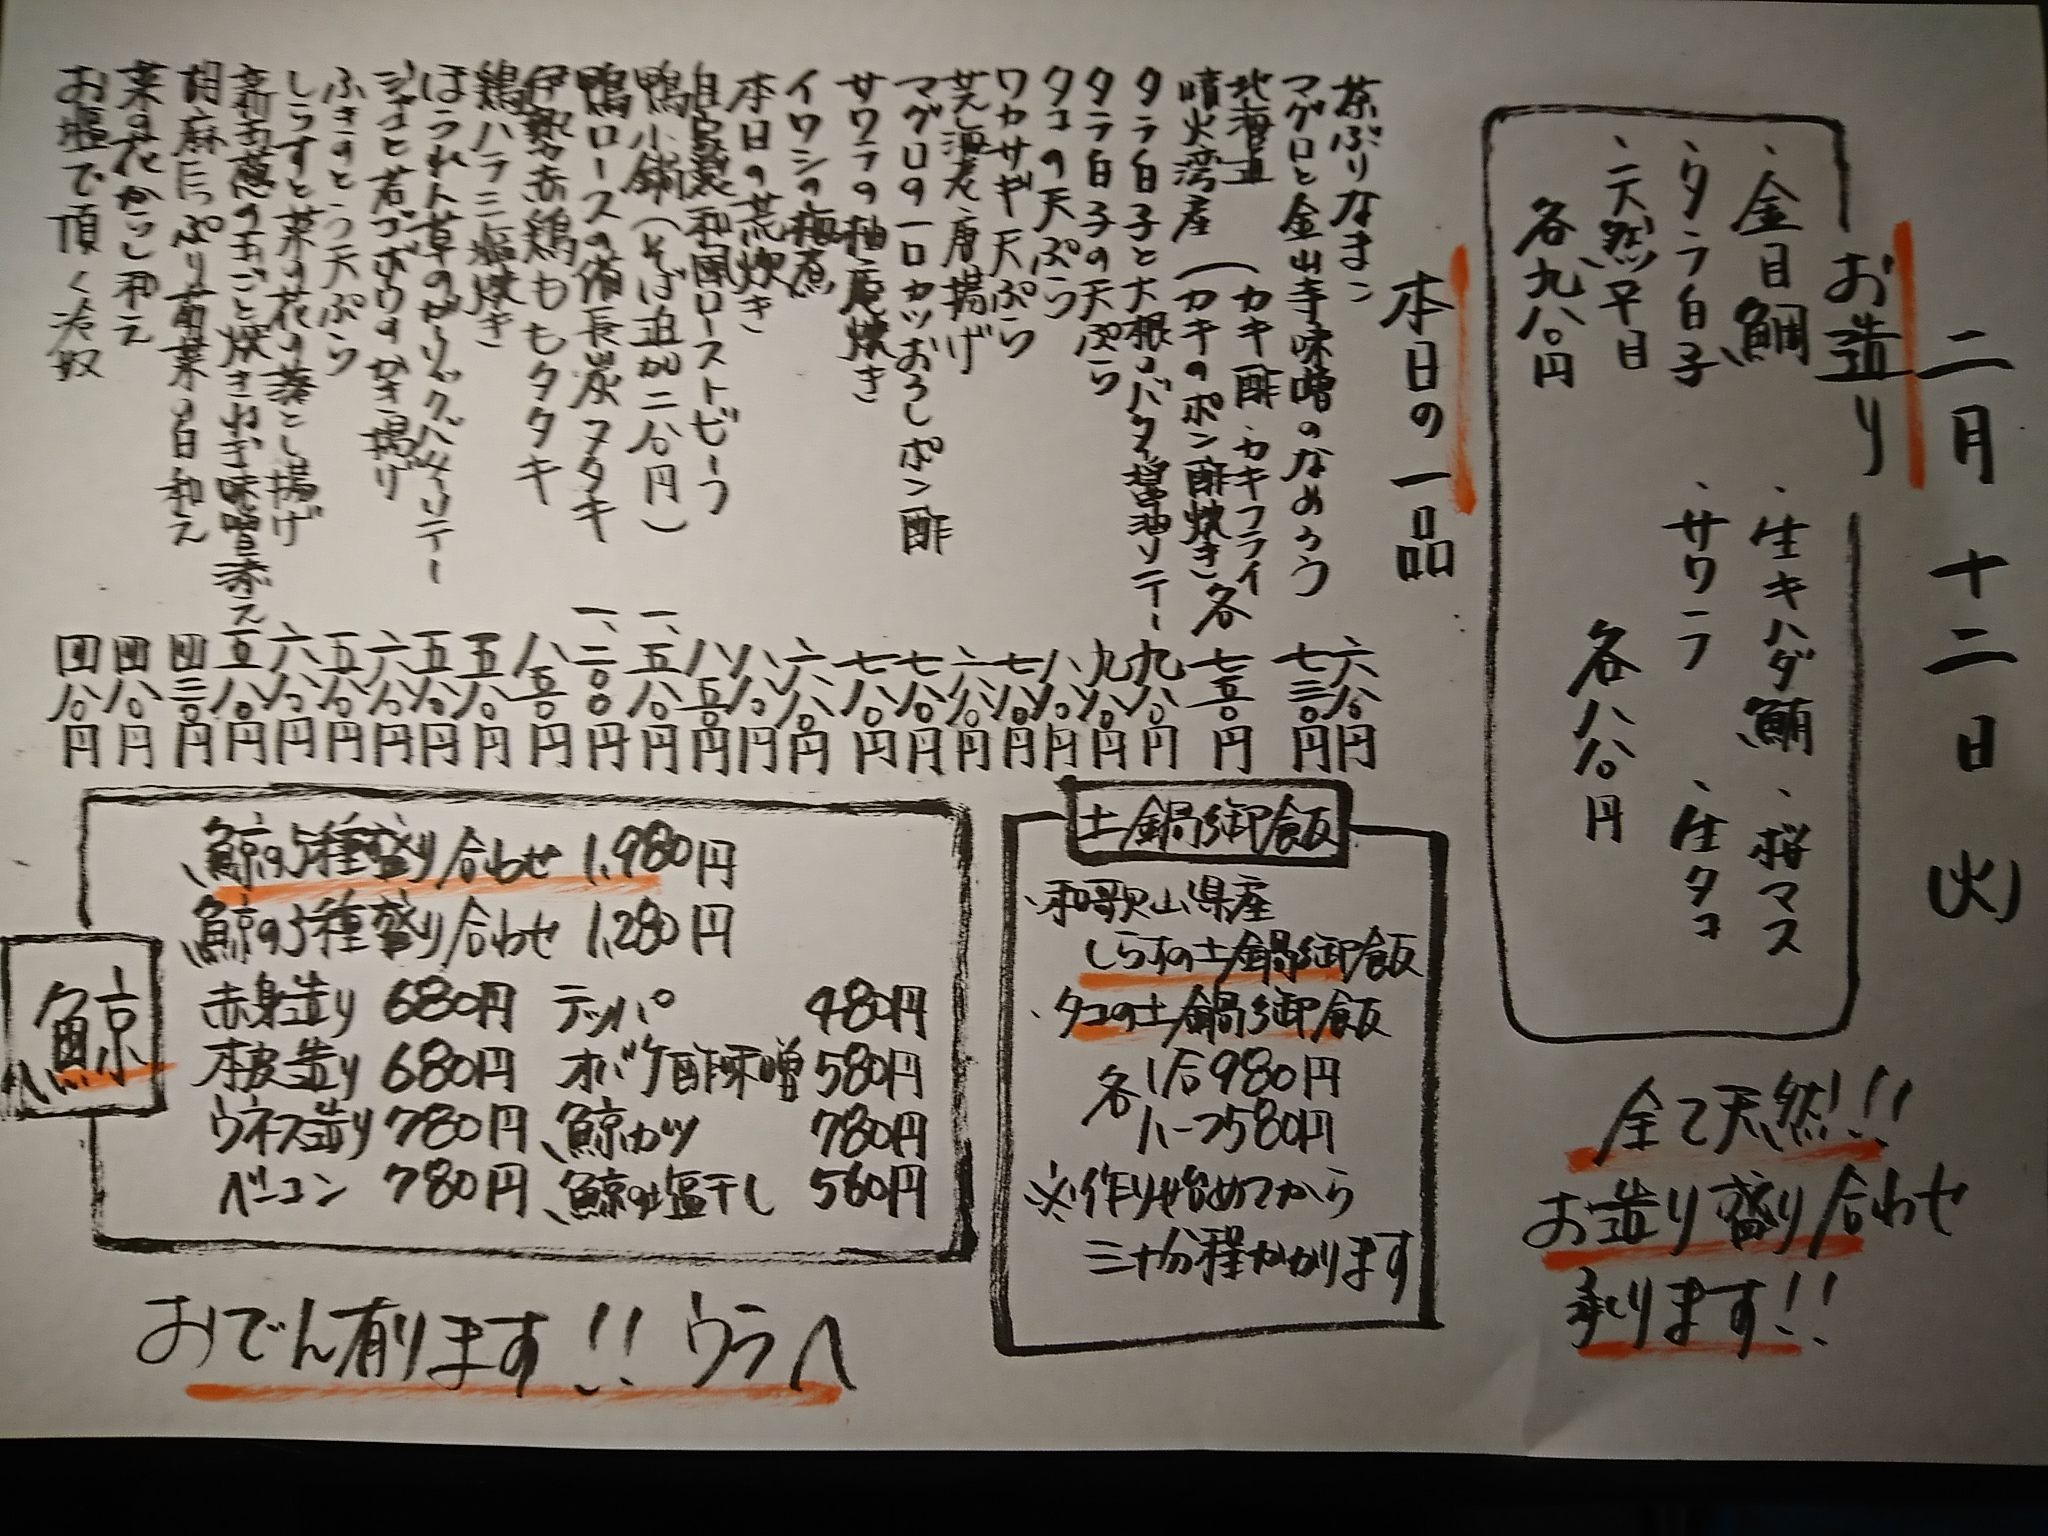 二月十二日(火)
お造り
・金目鯛 ・生キハダ鮪 ・桜マス
・タラ白子 ・サワラ ・生タコ
・天然平目
各九八〇円 各八八〇円
全て天然!!
お造り盛り合わせ
承ります!!
本日の一品
茶ぶりなまこ 六八〇円
マグロと金山寺味噌のなめろう 七三〇円
北海道(カキ酢・カキフライ
噴火湾産(カキのポン酢焼き)各 七五〇円
タラ白子と大根のバター醤油ソテー 九八〇円
タラ白子の天ぷら 九八〇円
タコの天ぷら 八八〇円
ワカサギ天ぷら 七八〇円
芝海老唐揚げ 六八〇円
マグロの一口カツおろしポン酢 七八〇円
サワラの柚庵焼き 七八〇円
イワシの梅煮 六八〇円
本日の荒炊き 八八〇円
自家製和風ローストビーフ 八五〇円
鴨小鍋(そば追加二八〇円) 一、五八〇円
鴨ロースの備長炭タタキ 一、二〇〇円
伊勢赤鶏ももタタキ 八五〇円
鶏ハラミ塩焼き 五八〇円
ほうれん草のガーリックバターソテー 五八〇円
ジャコと若ゴボウのかき揚げ 六八〇円
ふきのとう天ぷら 五八〇円
しらすと菜の花の落とし揚げ 六八〇円
葱のまるごと焼きねぎ味噌添え 五八〇円
胡麻たっぷり菊菜の白和え 四三〇円
菜の花からし和え 四八〇円
お塩で頂く冷奴 四八〇円
土鍋御飯
・和歌山県産
しらすの土鍋御飯
・タコの土鍋御飯
各1合980円
ハーフ580円
※作り始めてから
三十分程かかります
鯨
鯨の5種盛り合わせ 1,980円
鯨の3種盛り合わせ 1,280円
赤身造り 680円 テッパ 480円
本皮造り 680円 オバケ酢味噌 580円
ウネス造り 780円 鯨カツ 780円
ベーコン 780円 鯨の塩干し 560円
おでん有ります!! ウラへ